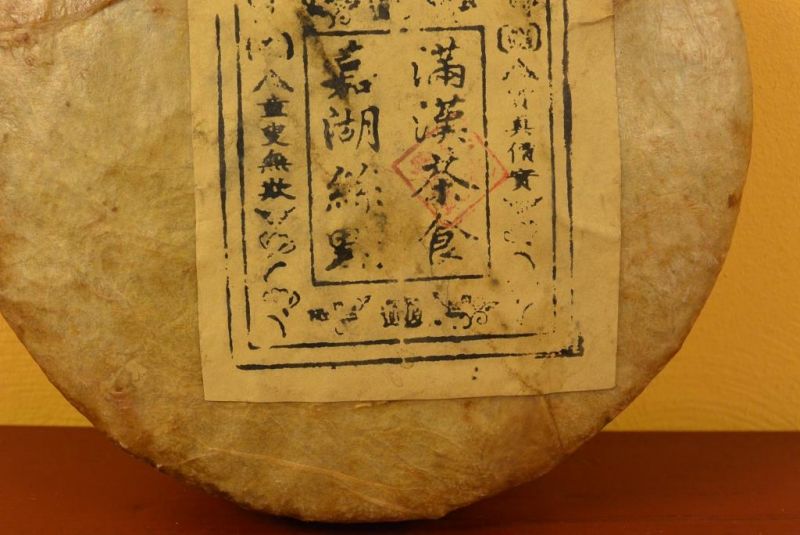 貨真價實
滿漢茶食
嘉湖絲點
童叟無欺